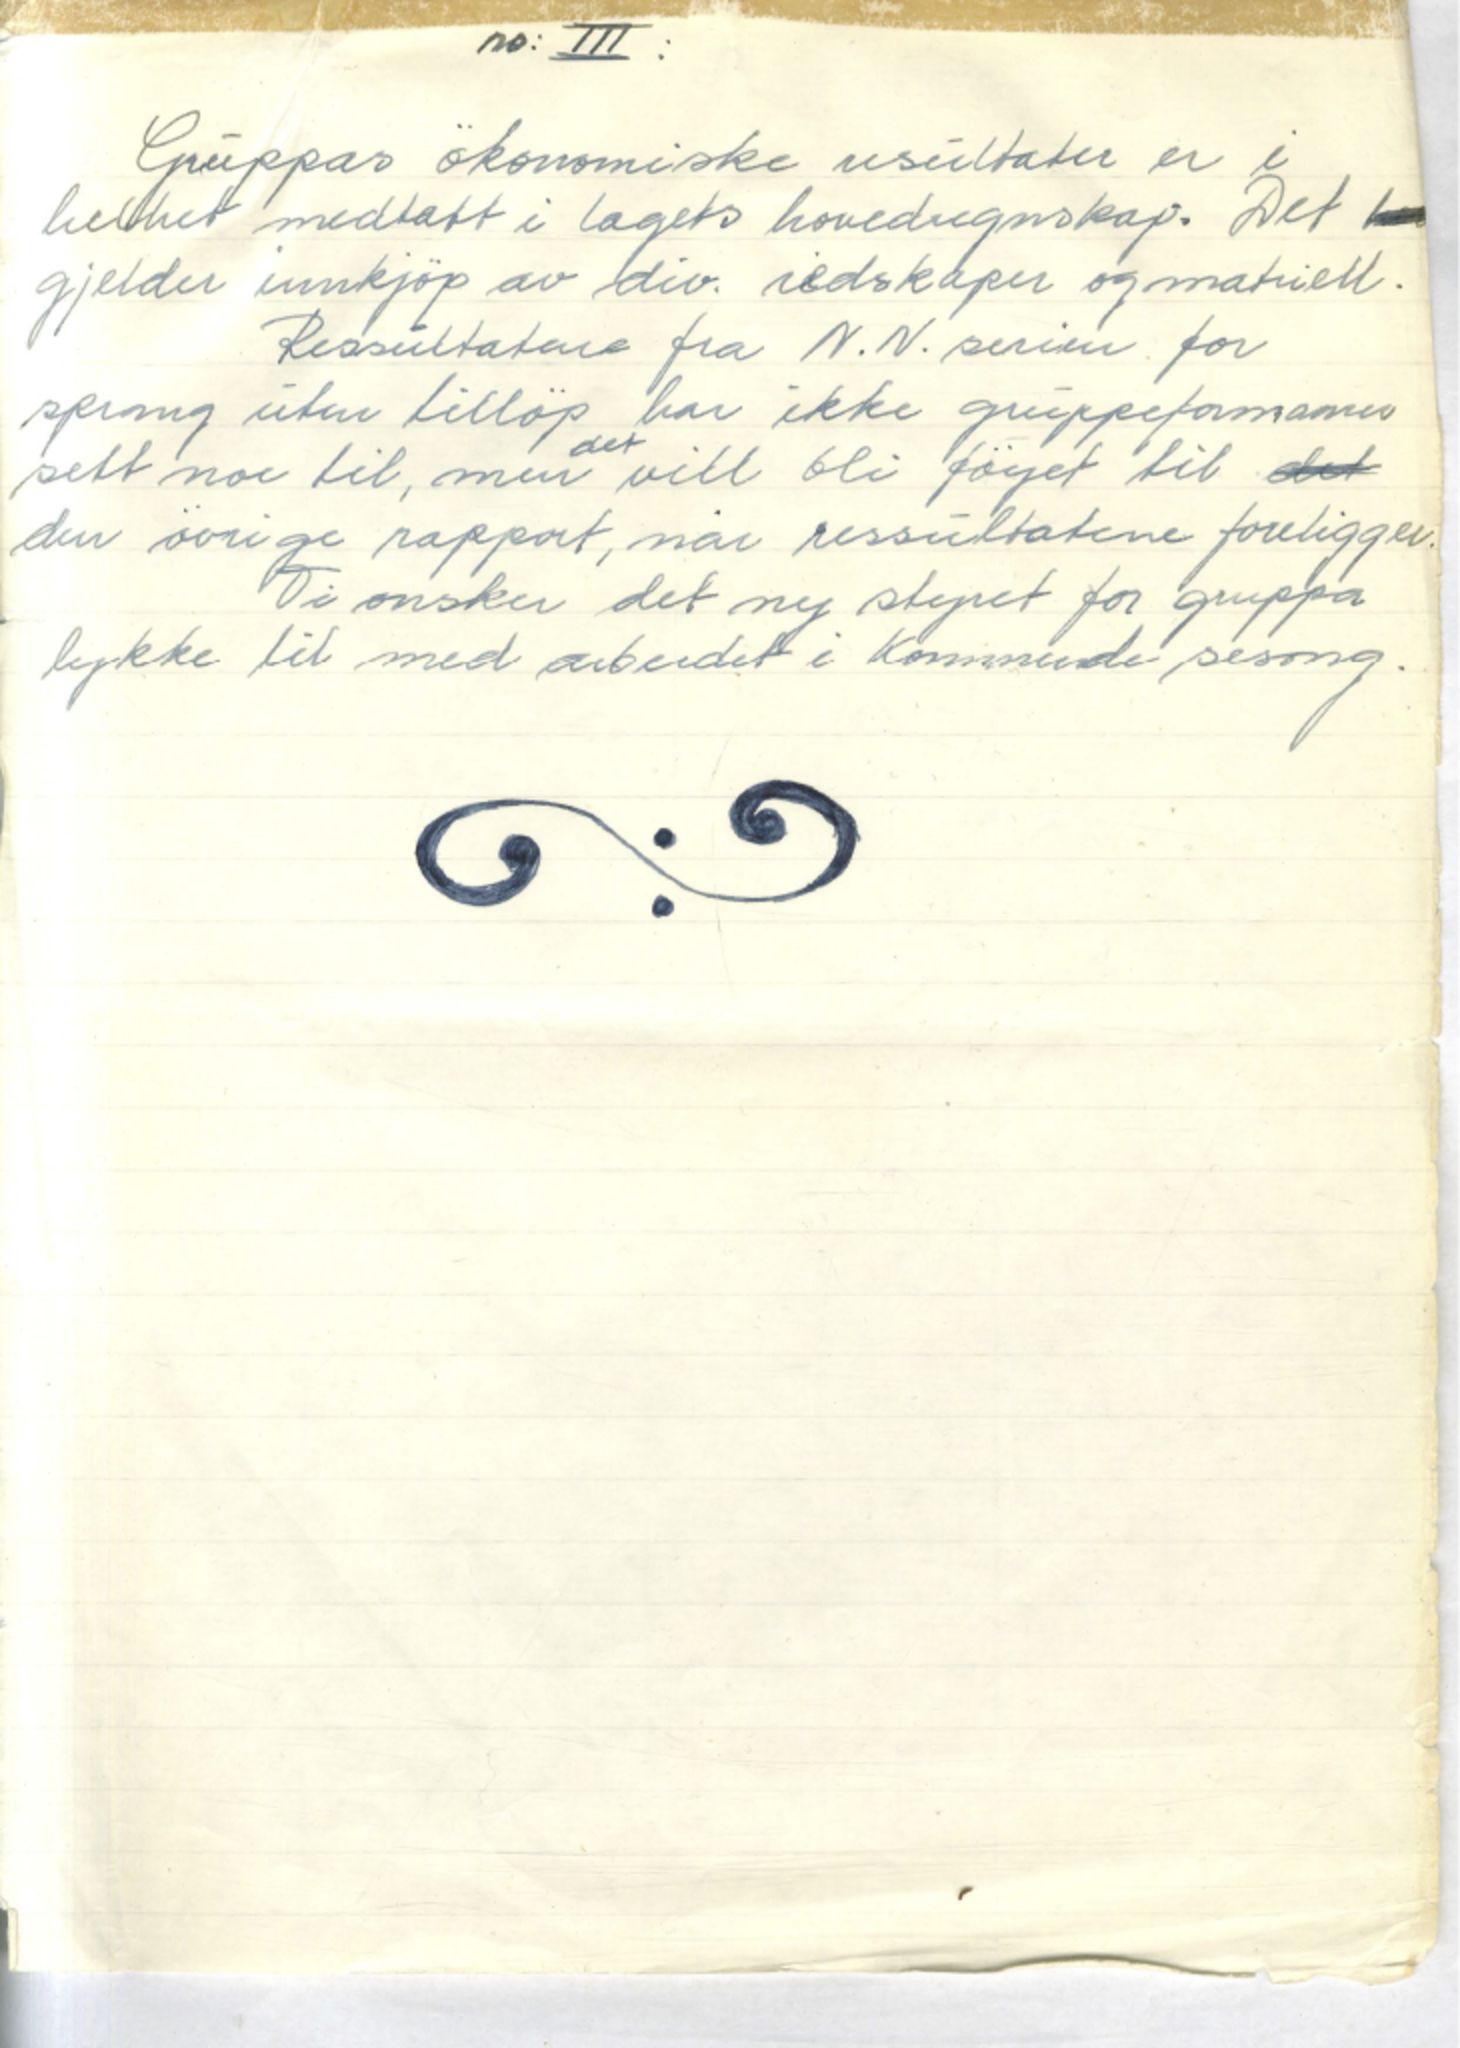 no: III :
Gruppas ökonomiske resultater er i
helhet medtatt i lagets hovedregnskap. Det
gjelder innkjöp av div. redskaper og matriell.
Ressultatene fra N.N. serien for
sprang uten tillöp har ikke gruppeformannen
sett noe til, men det vill bli föyet til det
den övrige rapport, når ressultatene foreligger.
Vi onsker det ny styret for gruppa
lykke til med arbeidet i Kommende sesong.